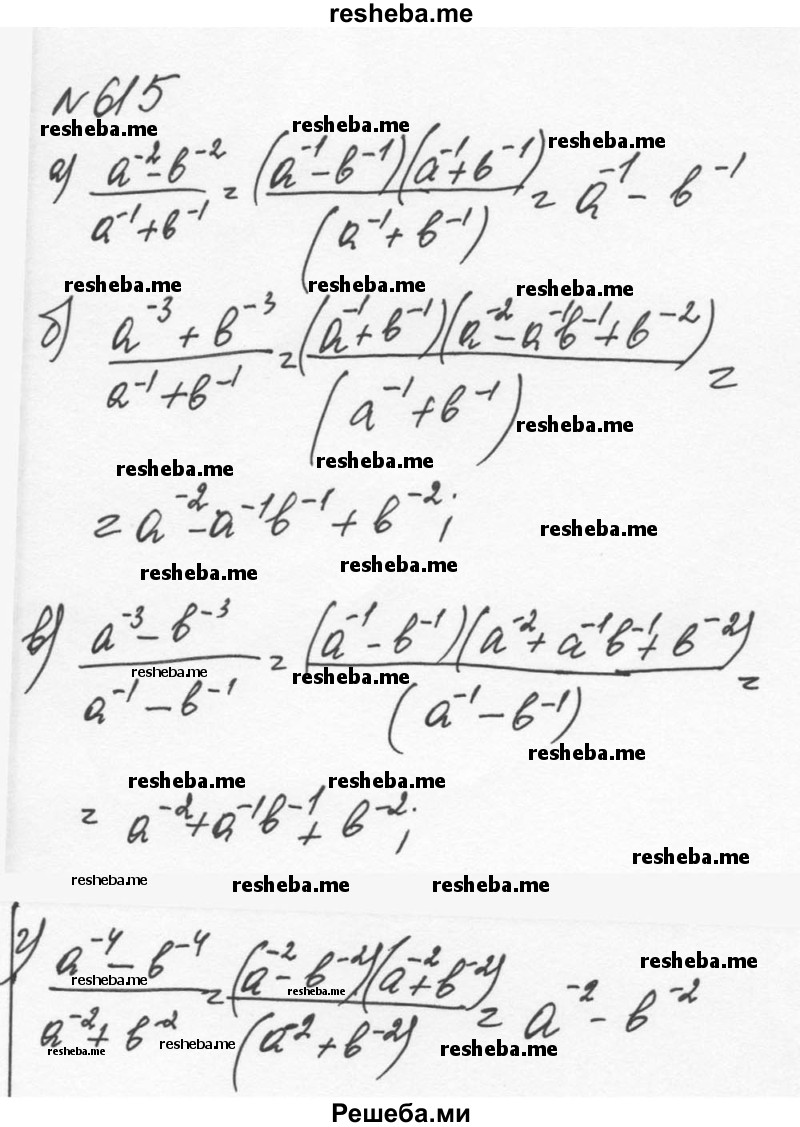 resheba.me
№615
resheba.me resheba.me resheba.me
а) (a⁻² - b⁻²)/(a⁻¹ + b⁻¹) = ((a⁻¹ - b⁻¹)(a⁻¹ + b⁻¹))/((a⁻¹ + b⁻¹)) = a⁻¹ - b⁻¹
resheba.me resheba.me resheba.me
б) (a⁻³ + b⁻³)/(a⁻¹ + b⁻¹) = ((a⁻¹ + b⁻¹)(a⁻² - a⁻¹b⁻¹ + b⁻²))/((a⁻¹ + b⁻¹)) =
resheba.me
resheba.me resheba.me
= a⁻² - a⁻¹b⁻¹ + b⁻²;
resheba.me
resheba.me resheba.me
в) (a⁻³ - b⁻³)/(a⁻¹ - b⁻¹) = ((a⁻¹ - b⁻¹)(a⁻² + a⁻¹b⁻¹ + b⁻²))/((a⁻¹ - b⁻¹)) =
resheba.me resheba.me
resheba.me
resheba.me resheba.me
= a⁻² + a⁻¹b⁻¹ + b⁻²;
resheba.me
resheba.me resheba.me resheba.me
г) (a⁻⁴ - b⁻⁴)/(a⁻² + b⁻²) = ((a⁻² - b⁻²)(a⁻² + b⁻²))/((a⁻² + b⁻²)) = a⁻² - b⁻²
resheba.me resheba.me resheba.me
resheba.me resheba.me resheba.me
Решеба.ми